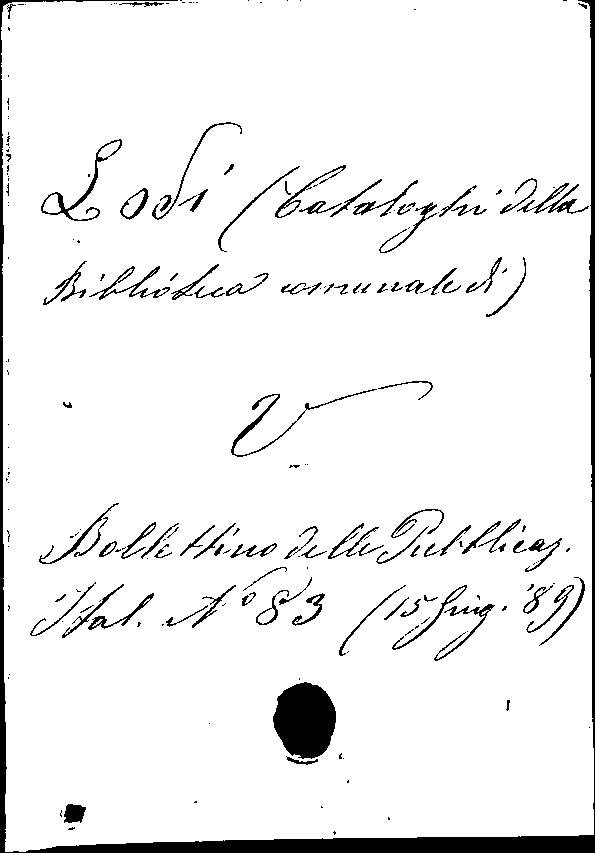 Lodi (Cataloghi della
Biblioteca comunale di)
V
Bollettino delle Pubblicaz.
Ital. No 83 (15 Giug. '89)